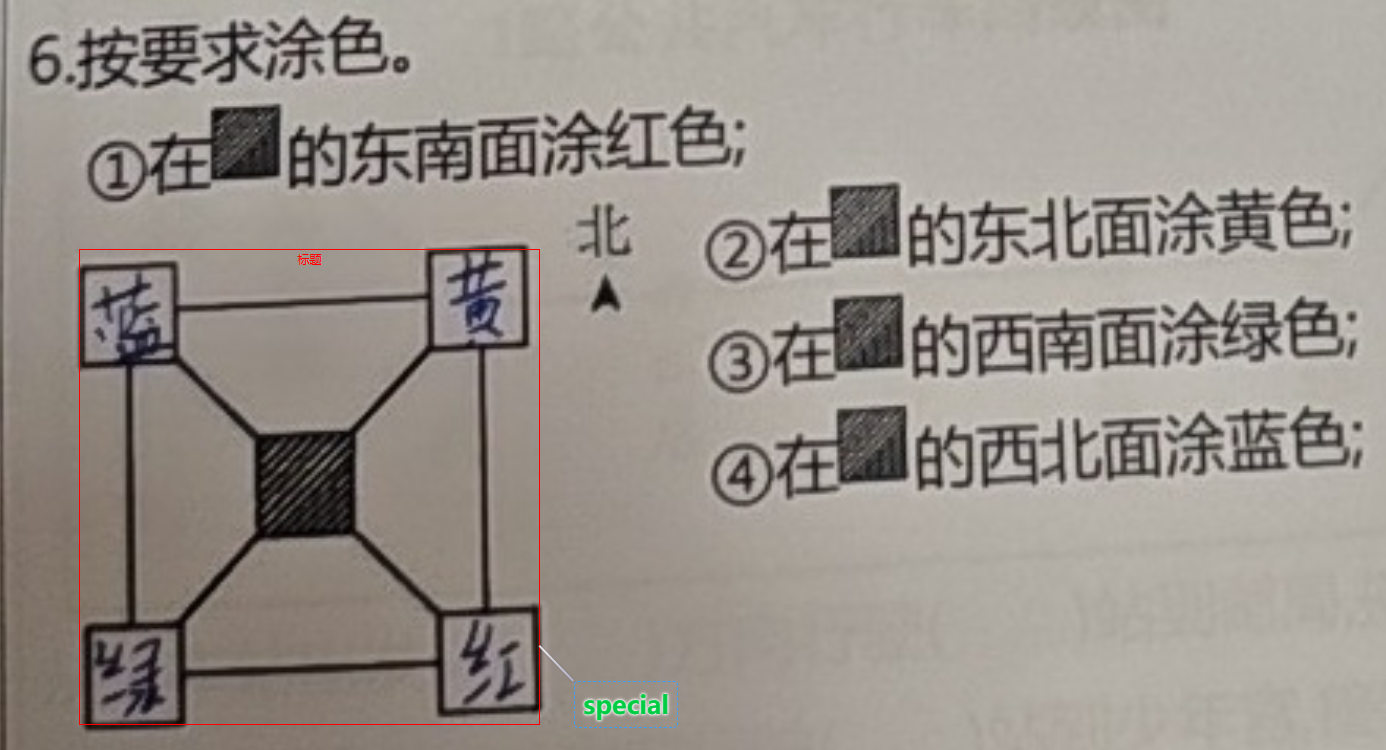 6.按要求涂色。
①在的东南面涂红色;
北
②在的东北面涂黄色;
③在的西南面涂绿色;
④在的西北面涂蓝色;
标题
蓝 黄
绿 红
special